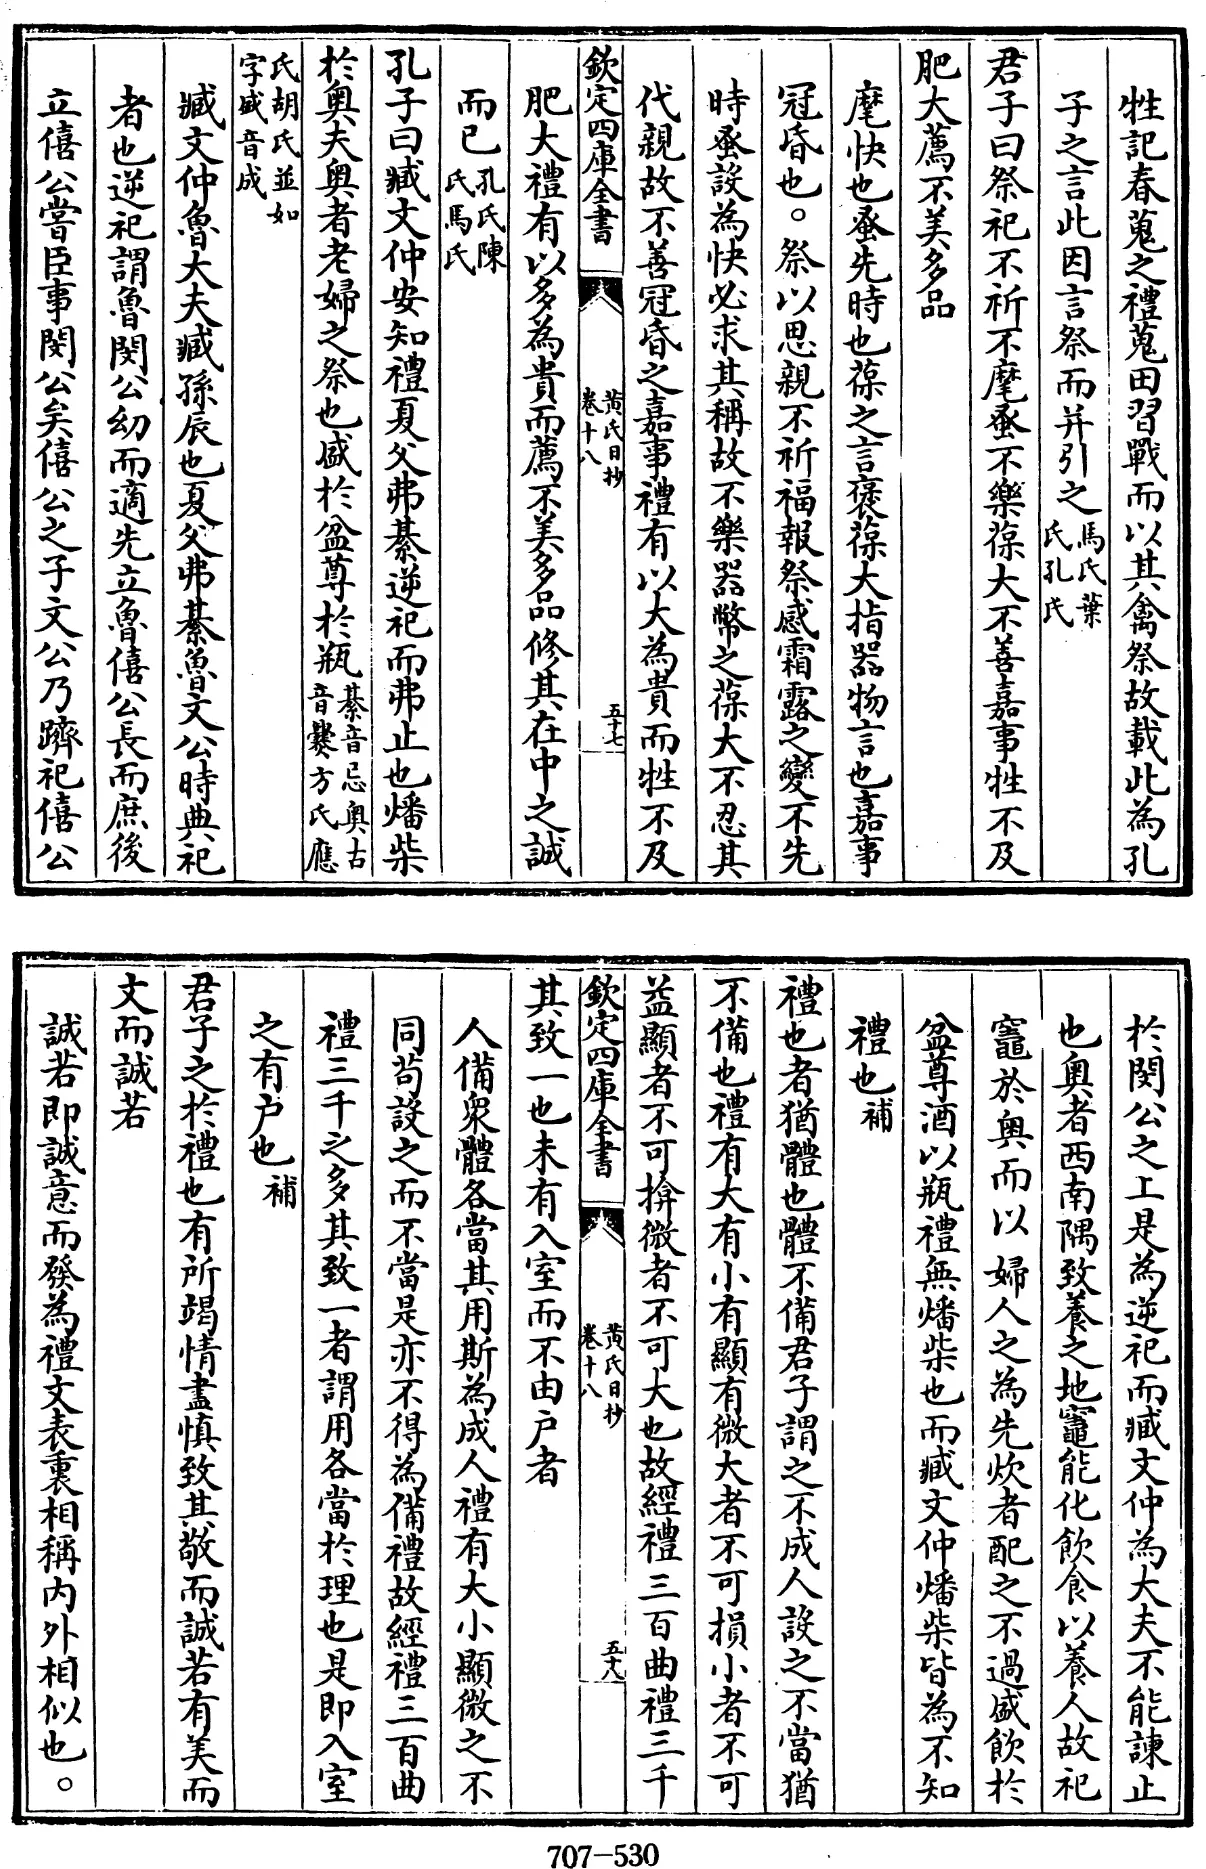 牲記春蒐之禮蒐田習戰而以其禽祭故載此為孔
子之言此因言祭而并引之馬氏葉氏孔氏
君子曰祭祀不祈不麾蚤不樂葆大不善嘉事牲不及
肥大薦不美多品
麾快也蚤先時也葆之言褒葆大指器物言也嘉事
冠昏也。祭以思親不祈福報祭感霜露之變不先
時蚤設為快必求其稱故不樂器幣之葆大不忍其
代親故不善冠昏之嘉事禮有以大為貴而牲不及
欽定四庫全書
黃氏日抄
卷十八
五十七
肥大禮有以多為貴而薦不美多品修其在中之誠
而已孔氏陳氏馬氏
孔子曰臧文仲安知禮夏父弗綦逆祀而弗止也燔柴
於奥夫奥者老婦之祭也盛於盆尊於瓶綦音忌奥古音爨方氏應
氏胡氏並如字盛音成
臧文仲魯大夫臧孫辰也夏父弗綦魯文公時典祀
者也逆祀謂魯閔公幼而適先立魯僖公長而庶後
立僖公嘗臣事閔公矣僖公之子文公乃躋祀僖公
於閔公之上是為逆祀而臧文仲為大夫不能諫止
也奥者西南隅致養之地竈能化飲食以養人故祀
竈於奥而以婦人之為先炊者配之不過盛飲於
盆尊酒以瓶禮無燔柴也而臧文仲燔柴皆為不知
禮也補
禮也者猶體也體不備君子謂之不成人設之不當猶
不備也禮有大有小有顯有微大者不可損小者不可
益顯者不可揜微者不可大也故經禮三百曲禮三千
欽定四庫全書
黃氏日抄
卷十八
五十八
其致一也未有入室而不由户者
人備衆體各當其用斯為成人禮有大小顯微之不
同茍設之而不當是亦不得為備禮故經禮三百曲
禮三千之多其致一者謂用各當於理也是即入室
之有户也補
君子之於禮也有所竭情盡慎致其敬而誠若有美而
文而誠若
誠若即誠意而發為禮文表裏相稱内外相似也。
707-530